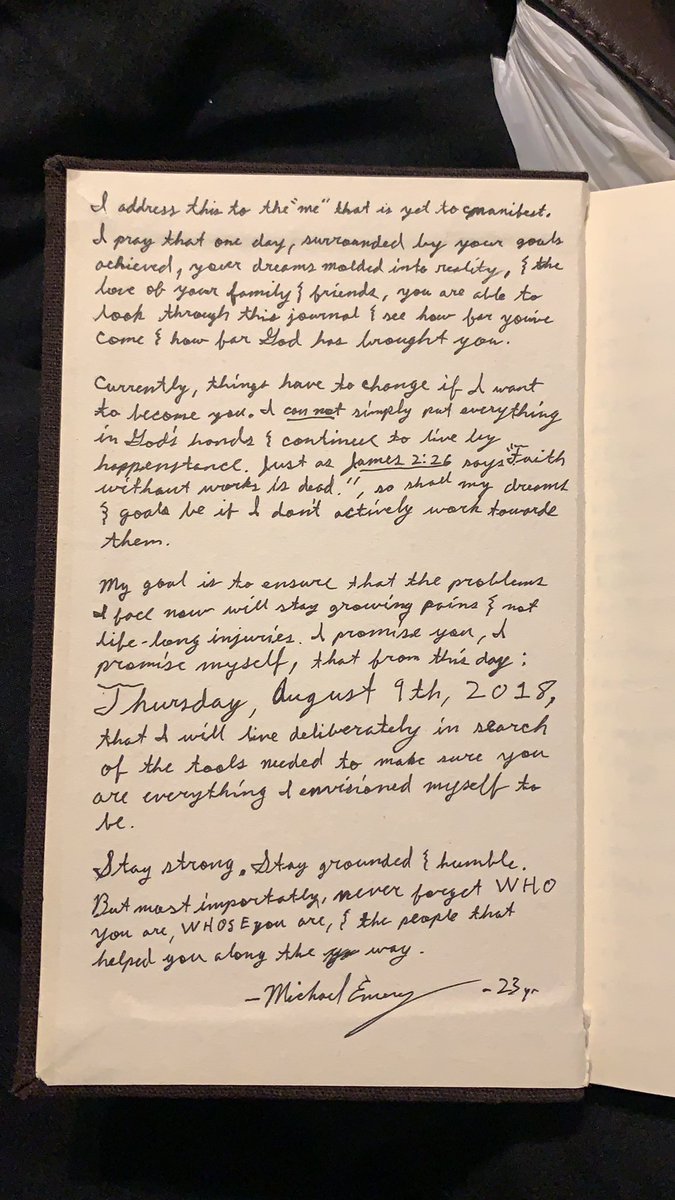 I address this to the "me" that is yet to manifest.
I pray that one day, surrounded by your goals
achieved, your dreams molded into reality, & the
love of your family & friends, you are able to
look through this journal & see how far you've
come & how far God has brought you.
Currently, things have to change if I want
to become you. I can not simply put everything
in God's hands & continue to live by
happenstance. Just as James 2:26 says "Faith
without works is dead.", so shall my dreams
& goals be if I don't actively work towards
them.
My goal is to ensure that the problems
I face now will stay growing pains & not
life-long injuries. I promise you, I
promise myself, that from this day:
Thursday, August 9th, 2018,
that I will live deliberately in search
of the tools needed to make sure you
are everything I envisioned myself to
be.
Stay strong. Stay grounded & humble.
But most importatly, never forget WHO
you are, WHOSE you are, & the people that
helped you along the way.
-Michael Emery -23yr